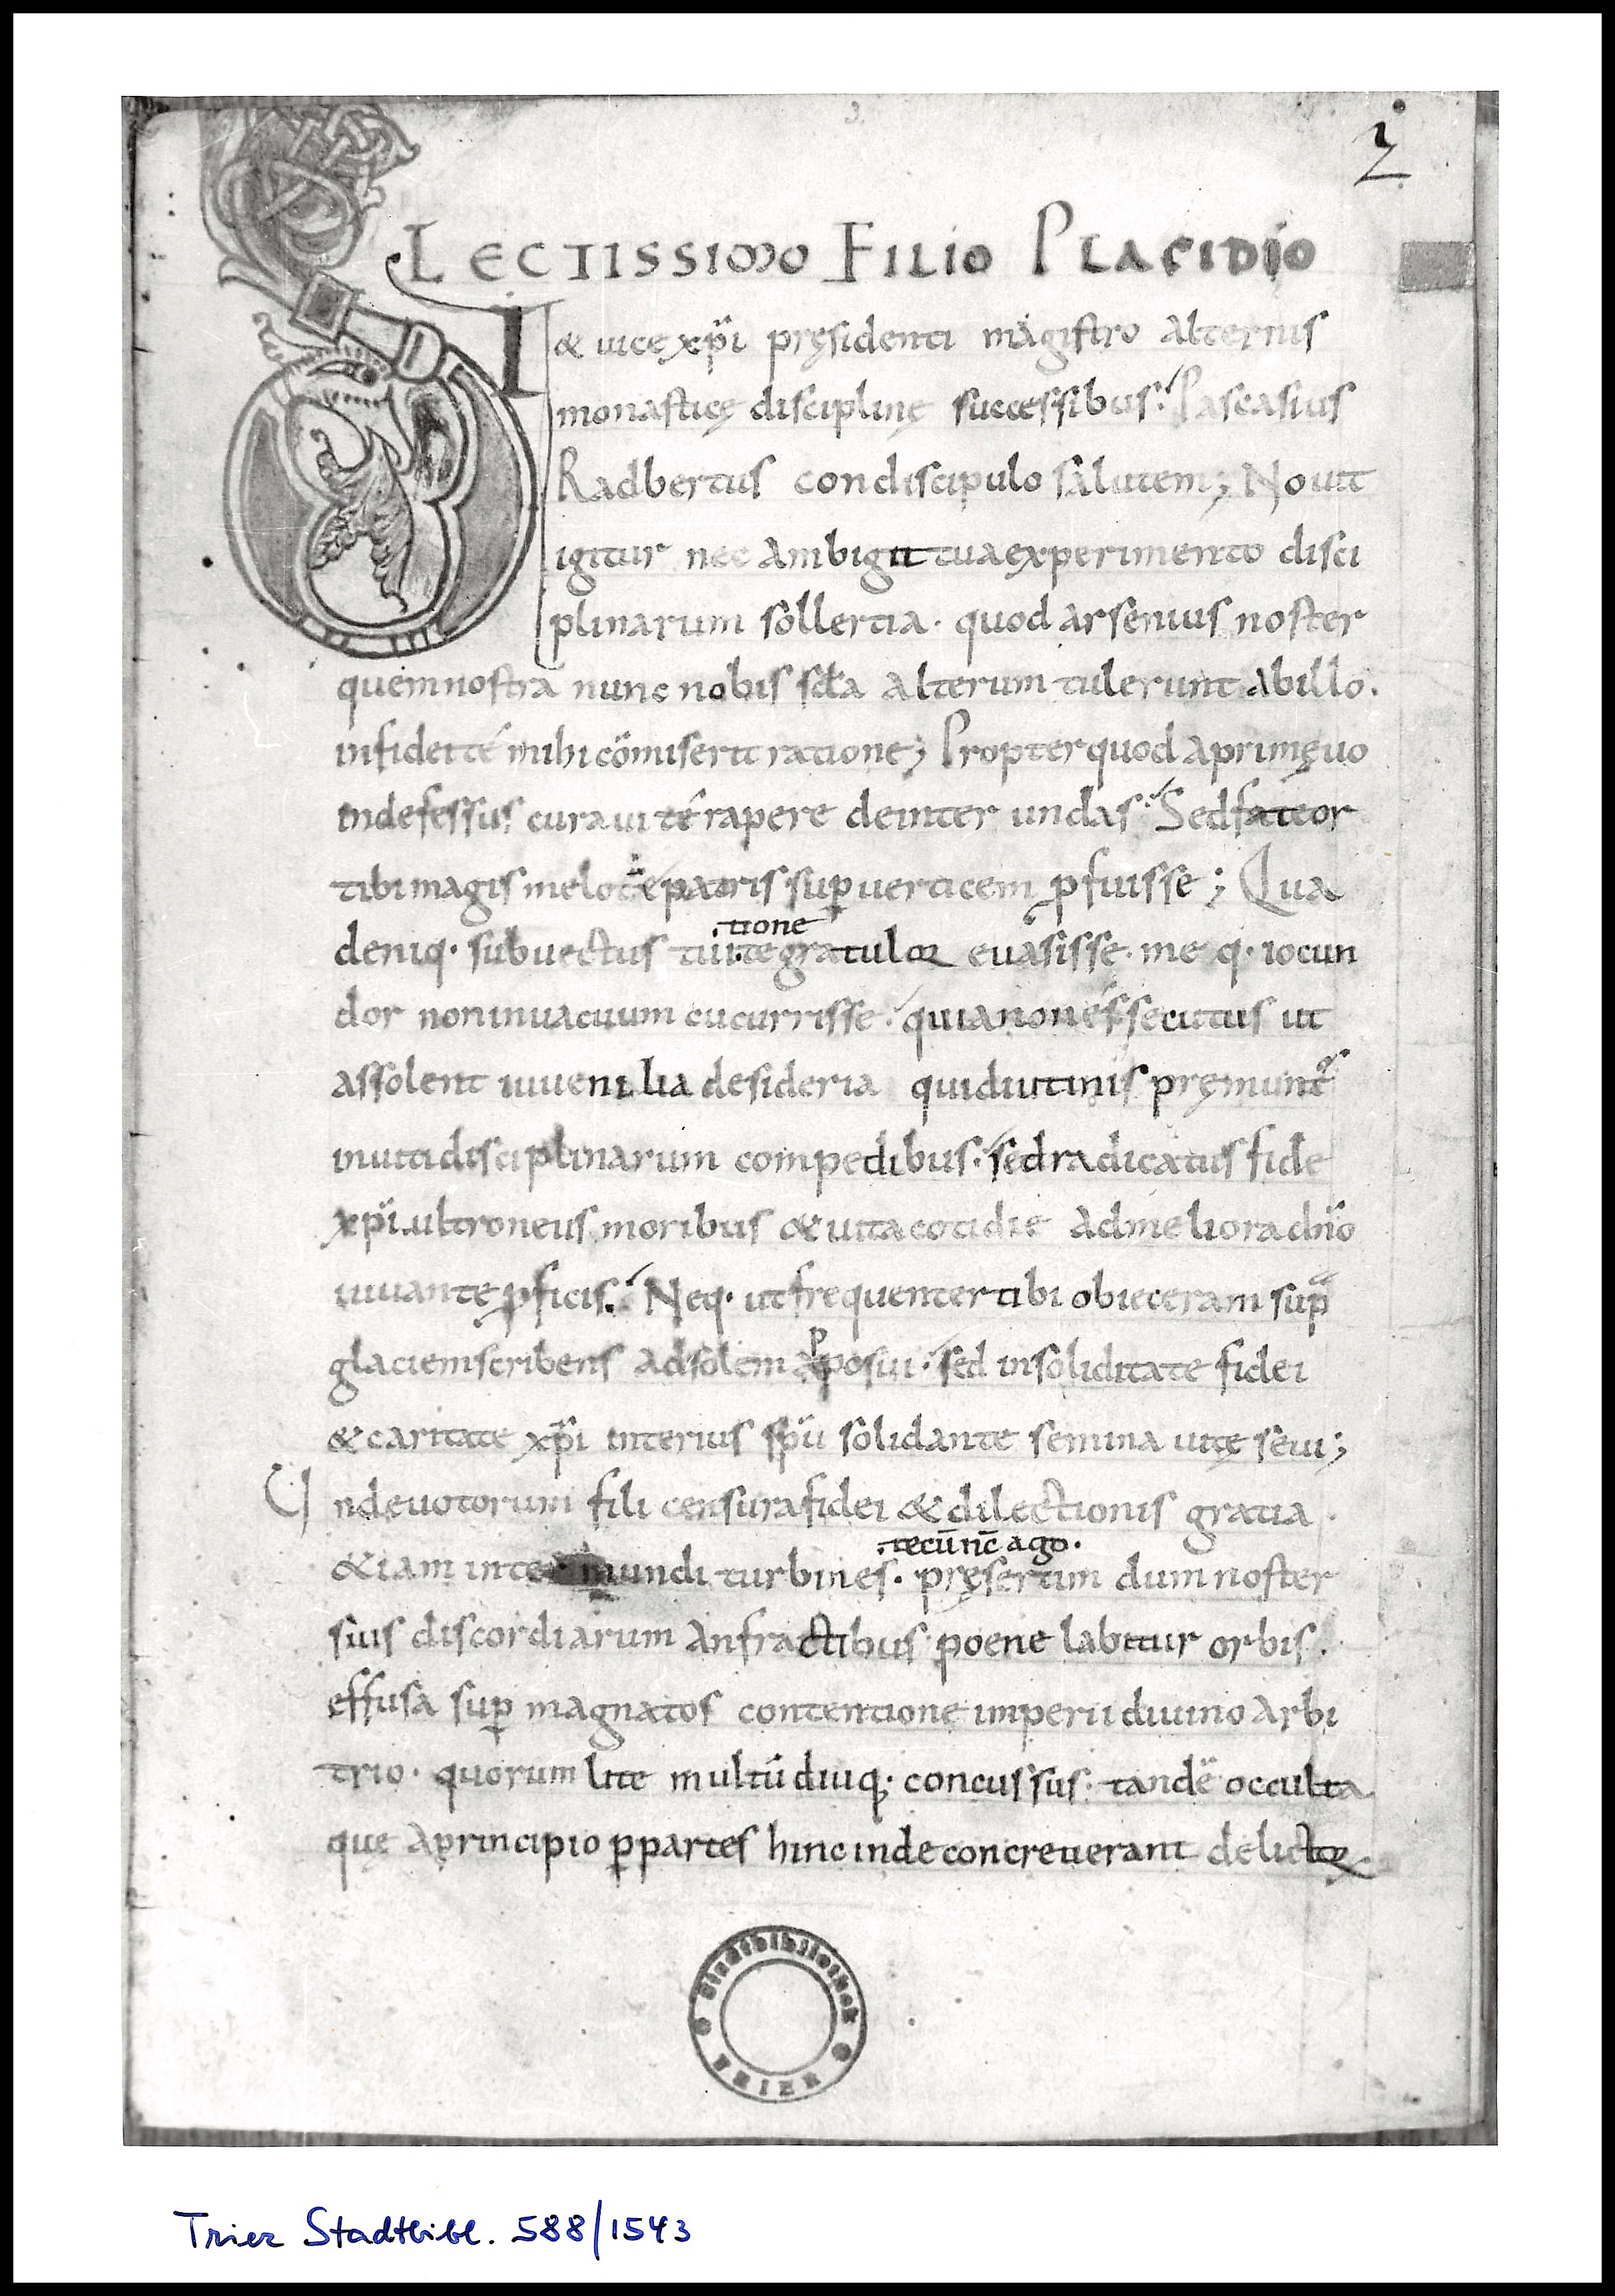 3.
DI LECTISSIMO FILIO PLACIDIO
& uice xp̄i pręsidenti magistro alternis
monasticę disciplinę successibus. Pascasius
Radbertus condiscipulo salutem; Nouit
igitur nec ambigit tua experimento disci
plinarum sollertia. quod arsenius noster
quem nostra nunc nobis scła alterum tulerunt ab illo.
in fidei té mihi cōmiserit ratione; Propter quod a primęuo
indefessus curaui té rapere de inter undas. Sed fateor
tibi magis melote patris sup̱ uerticem ꝓfuisse; Qua
tione
deniq· subuectus tui te gratulor euasisse. me q· iocun
dor non in uacuum cucurrisse. quia non es secutus ut
assolent iuuenilia desideria qui diutinis pręmunt᷑
inuiti disciplinarum compedibus. sed radicatus fide
xp̄i ultroneus moribus & uita cotidie ad meliora dn̄o
iuuante ꝓficis. Neq· ut frequenter tibi obieceram sup̱
p
glaciem scribens ad solem apposui. sed in soliditate fidei
& caritate xp̄i interius sp̄u solidante semina uitę seui;
Unde uotorum fili censura fidei & dilectionis gratia.
.tecū nc̄ ago.
& iam inter mundi turbines. pręsertim dum noster
suis discordiarum anfractibus poene labitur orbis.
effusa sup̱ magnatos contentione imperii diuino arbi
trio. quorum lite multū diuq· concussus. tandē occulta
quę a principio ꝑ partes hinc inde concreuerant delictoꝝ
Stadtbibliothek
TRIER
Trier Stadtbibl. 588/1543